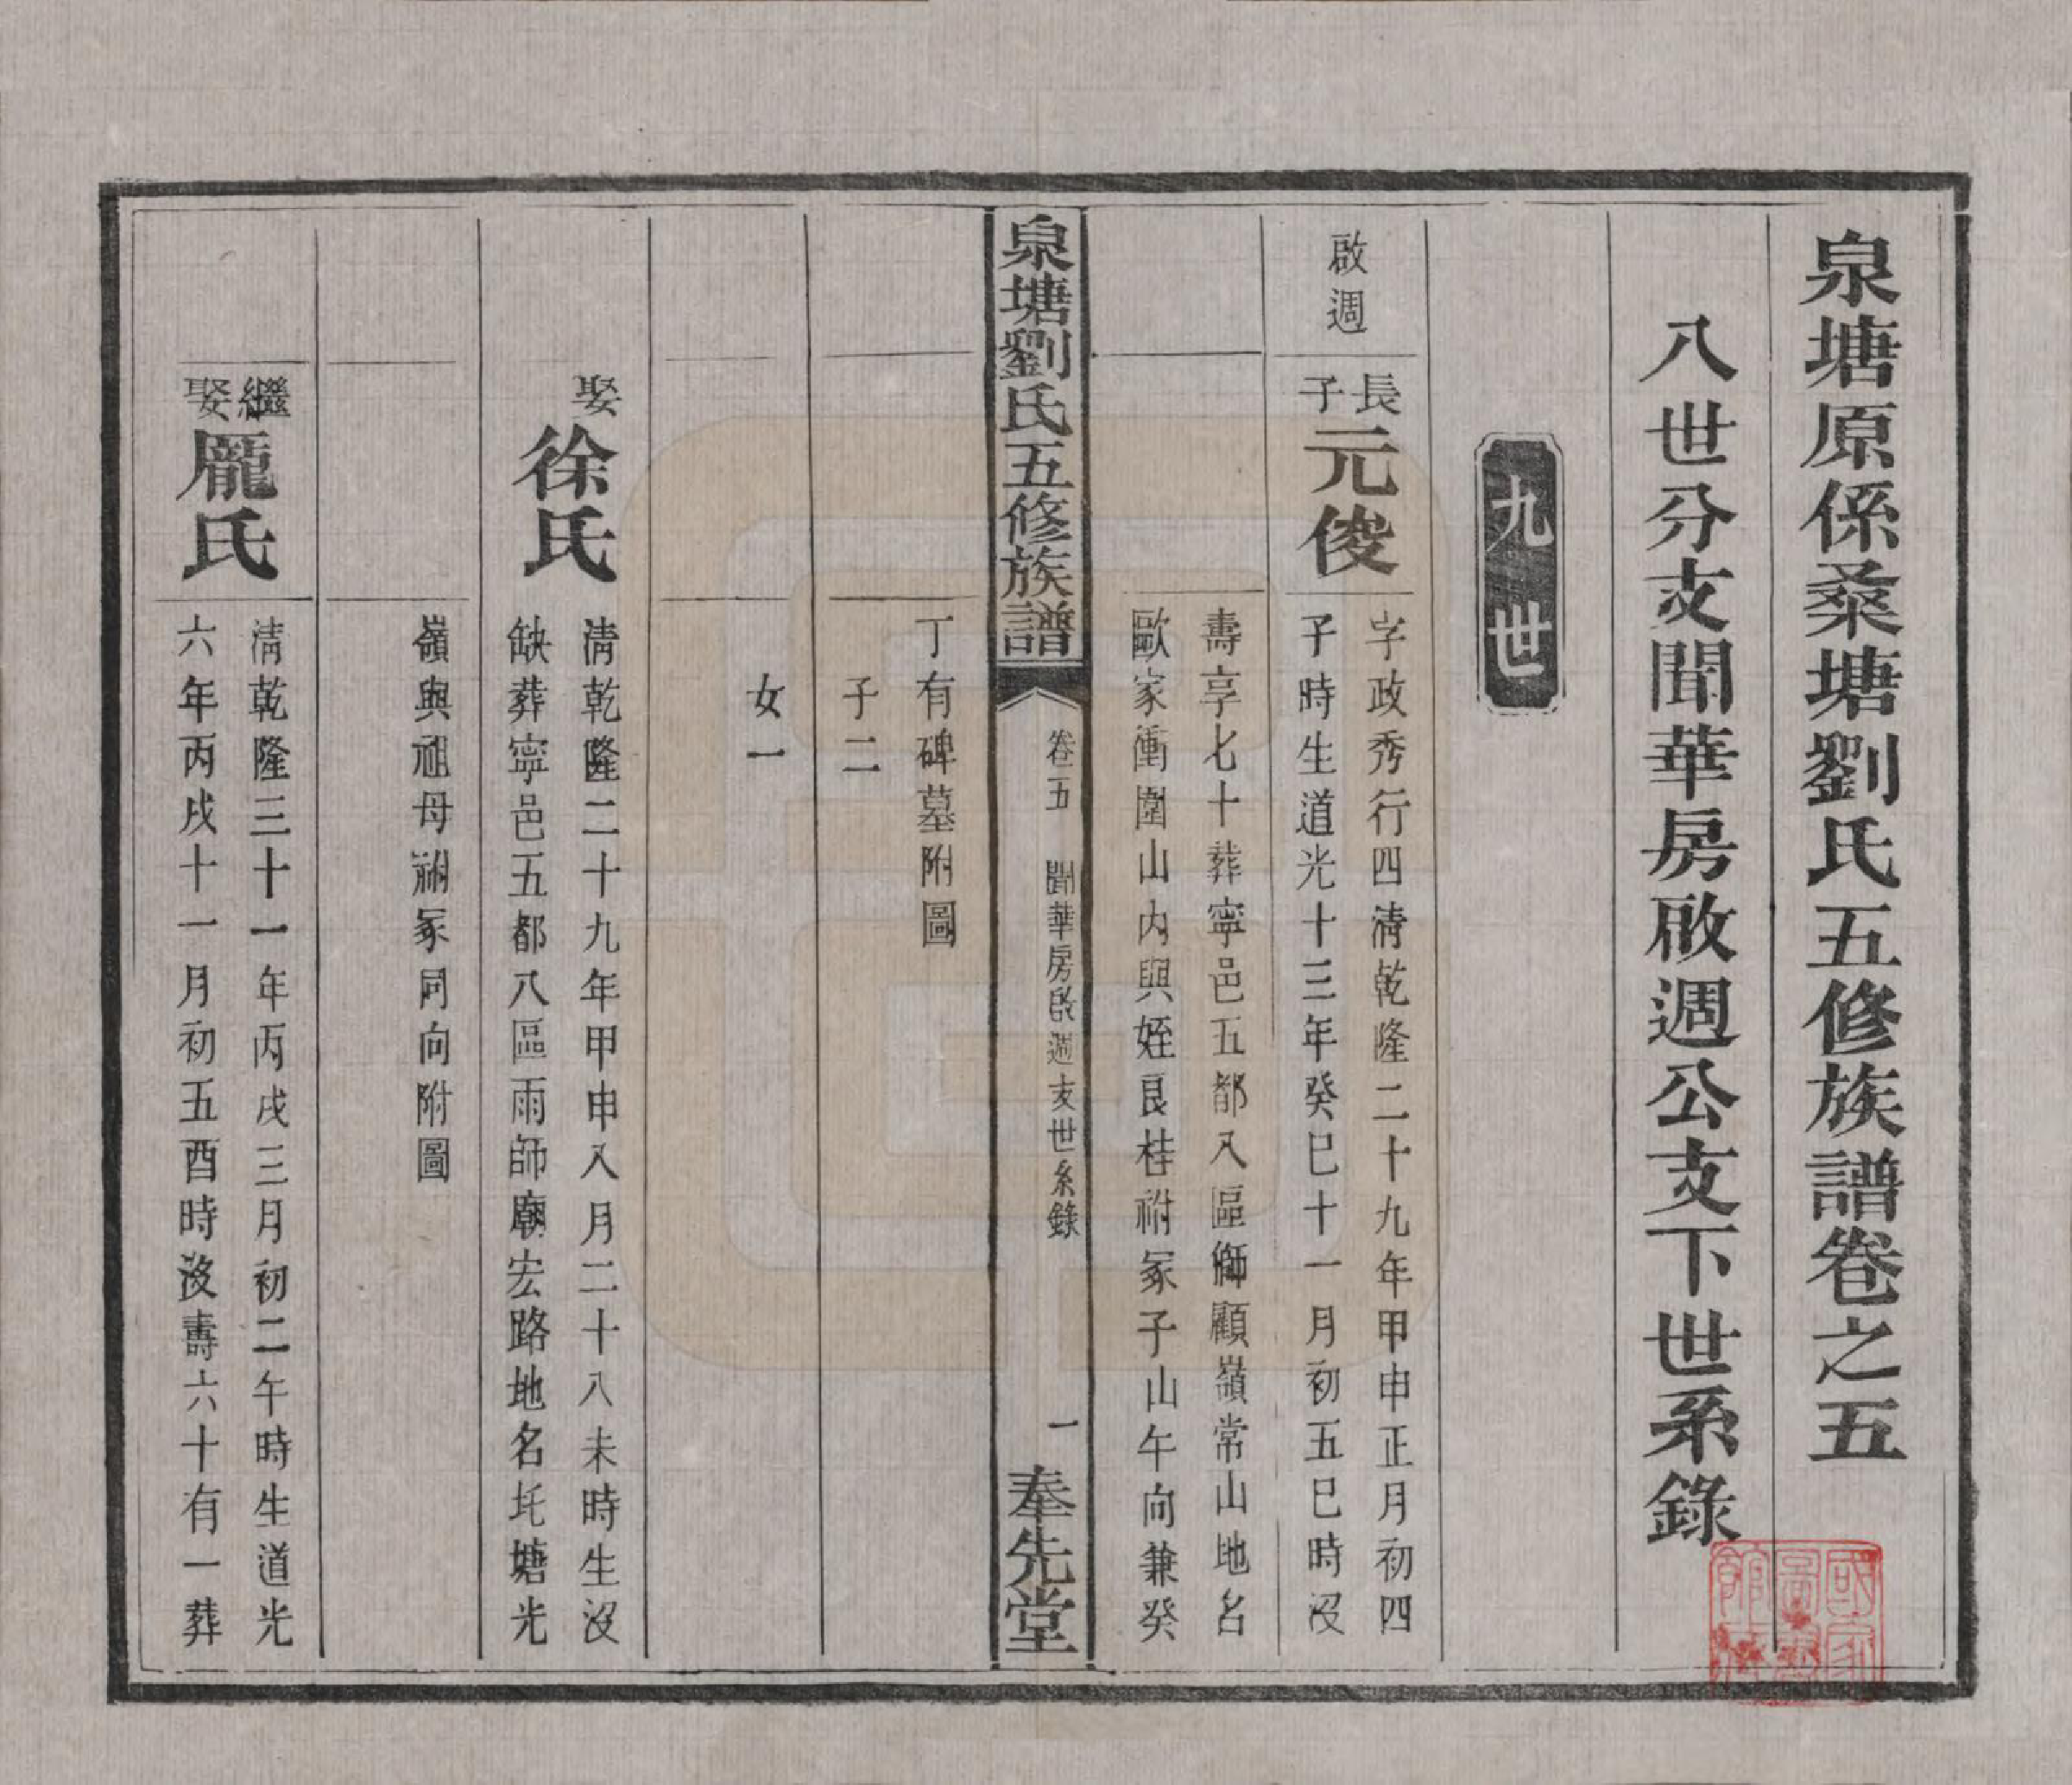 泉塘原係桑塘劉氏五修族譜卷之五
八世分支聞華房啟週公支下世系錄
九世
啟週
長子
元俊
字政秀行四清乾隆二十九年甲申正月初四
子時生道光十三年癸巳十一月初五巳時沒
壽享七十葬寧邑五都八區獅顧嶺常山地名
歐家衝圍山內與姪良桂祔冢子山午向兼癸
泉塘劉氏五修族譜
卷五
聞華房啟週支世系錄
一
奉先堂
丁有碑墓附圖
子二
女一
娶
徐氏
清乾隆二十九年甲申八月二十八未時生沒
缺葬寧邑五都八區雨師廟宏路地名圫塘光
嶺與祖母祔冢同向附圖
繼娶
龐氏
清乾隆三十一年丙戌三月初二午時生道光
六年丙戌十一月初五酉時沒壽六十有一葬